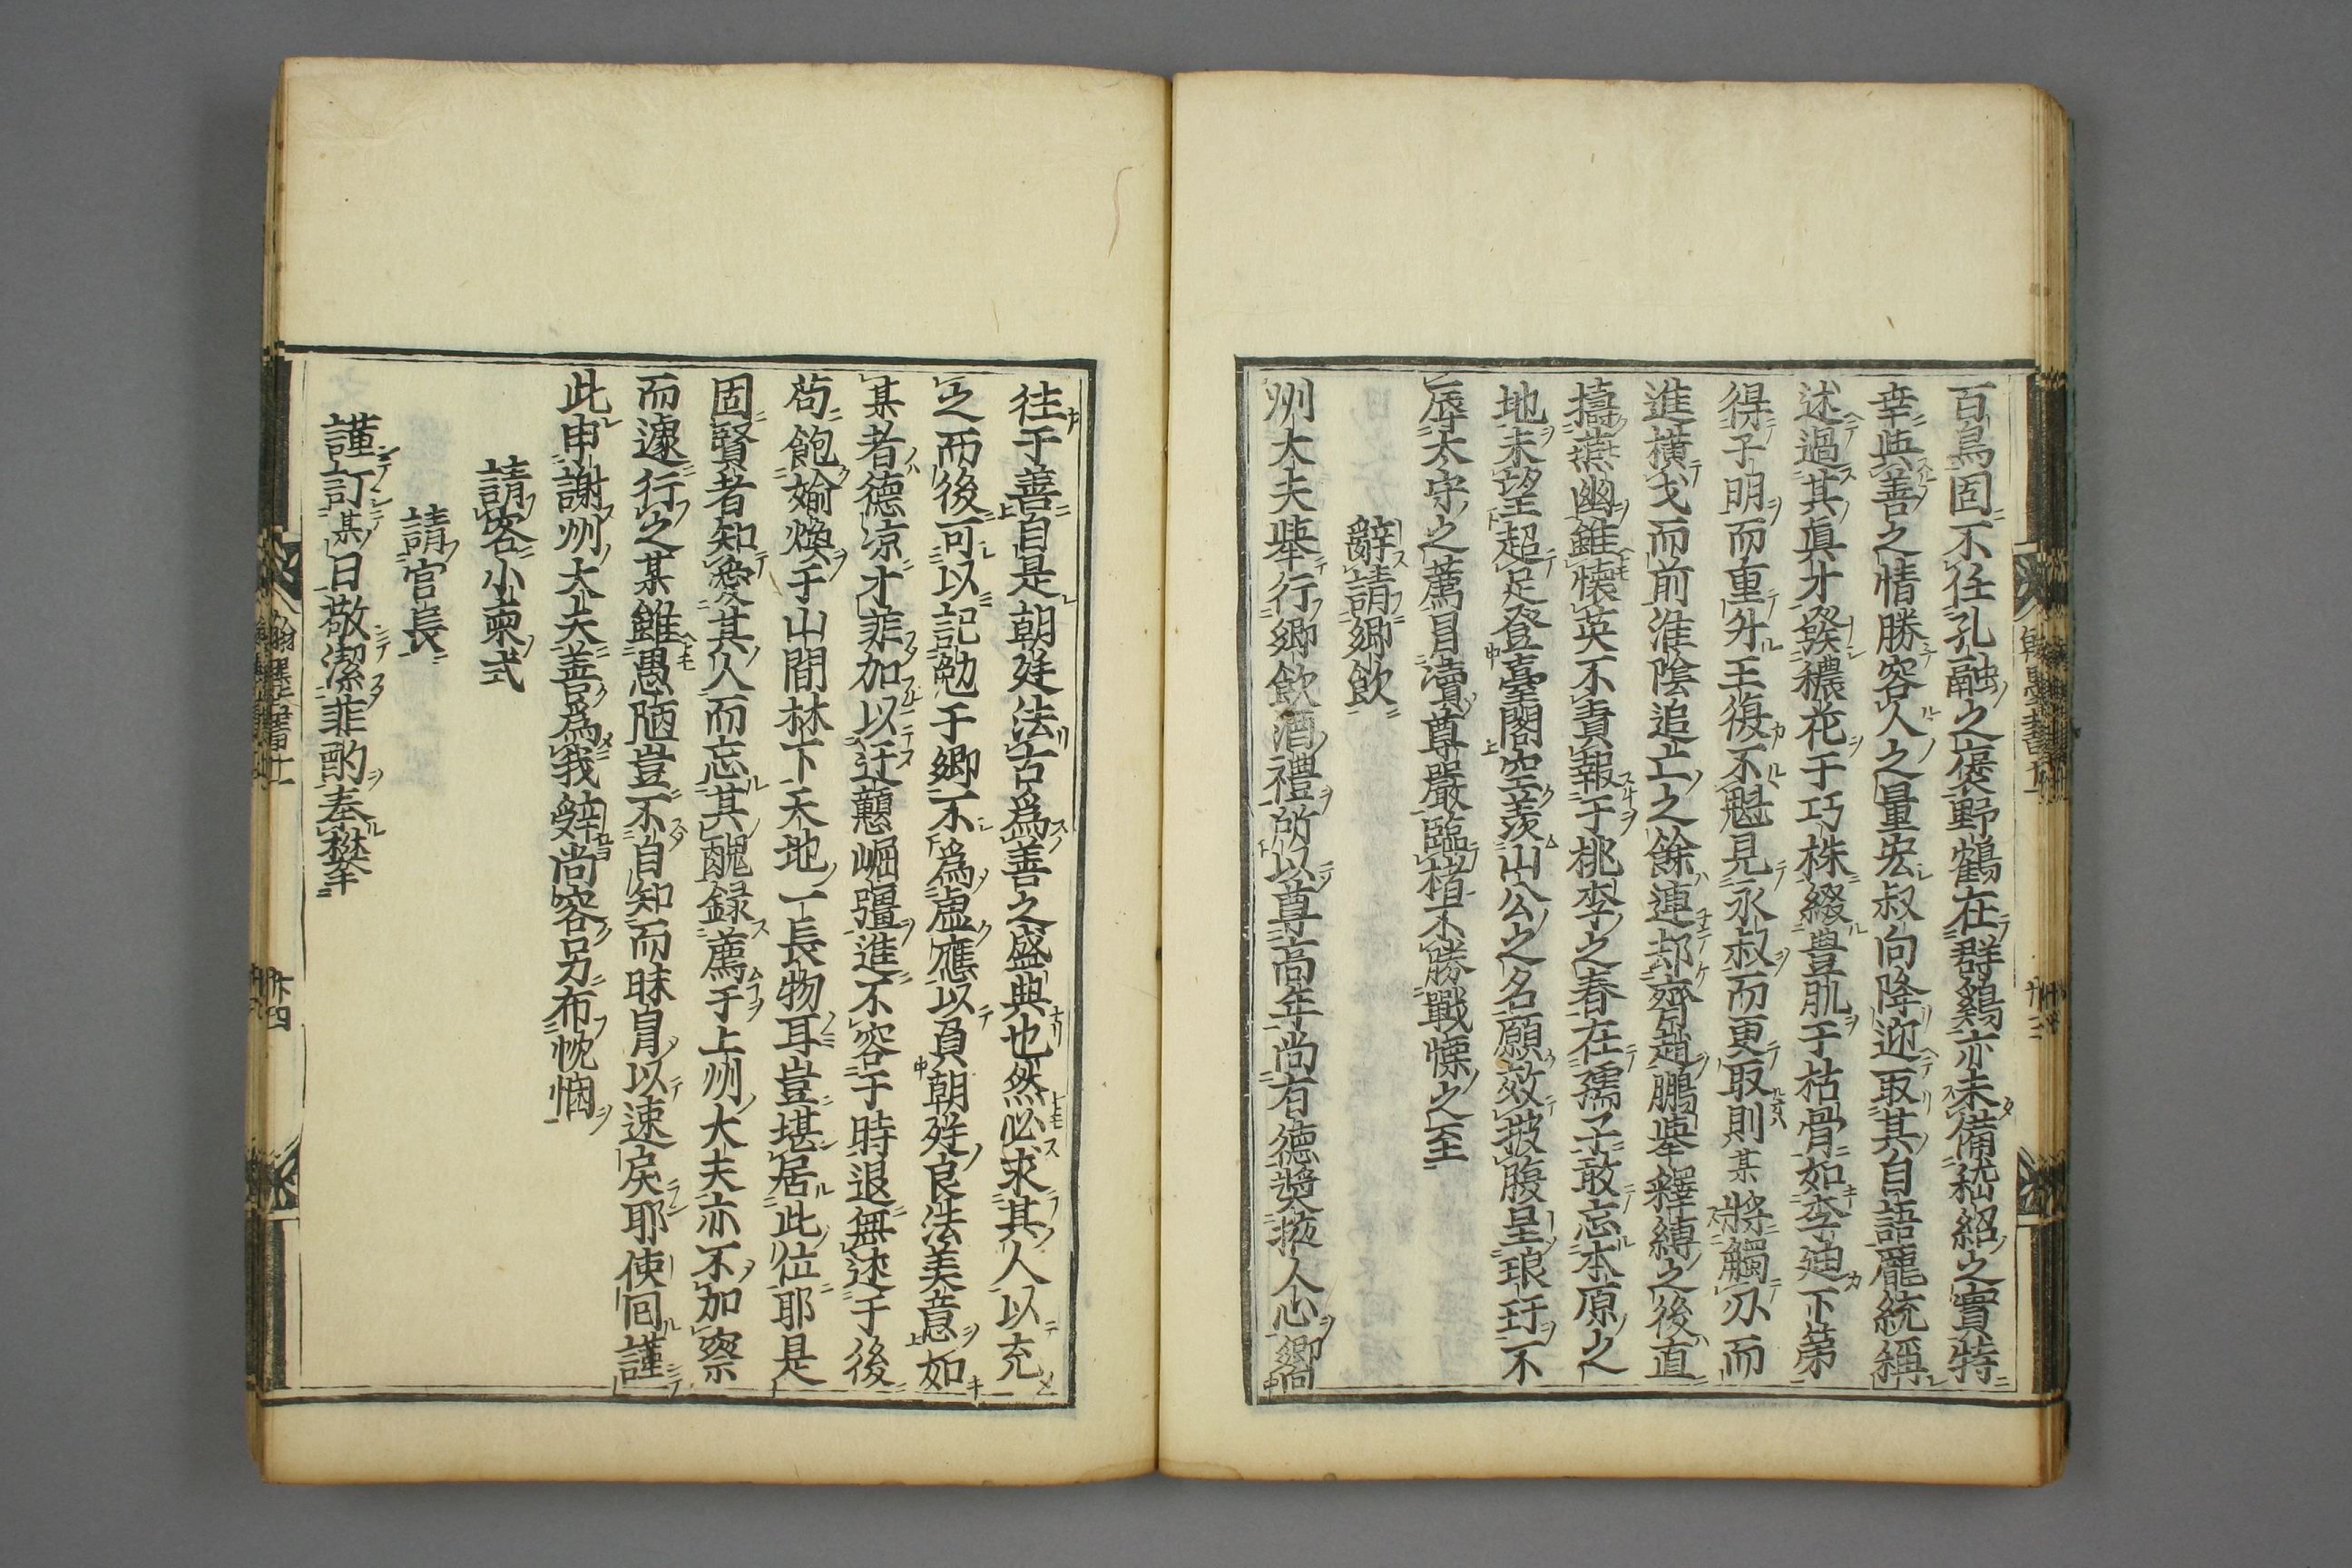 百鳥固不任孔融之褒野鶴在群鷄亦未備嵇紹之實特
幸與善之情勝容人之量宏叔向降迎取其自語龐統稱
述過其眞才發穠花于巧株綴豊肌于枯骨如李廸下第
得子明而重升王復不魁見永叔而更取則某將觸刃而
進橫戈而前淮陰追亡之餘連却齊趙鵬舉釋縛之後直
擣燕幽雖懐英不責報于桃李之春在孺子敢忘本原之
地未望超足登臺閣空羡山公之名願效披腹呈琅玕不
辱太守之薦冒瀆尊嚴臨楮不勝戰慄之至
辭請鄉飲
州大夫舉行鄉飲酒禮所以尊高年尚有德奬掖人心鄉
往于善自是朝廷法古爲善之盛典也然必求其人以充
之而後可以記勉于鄉不爲虛應以負朝廷良法美意如
某者德凉才菲加以迂戇崛彊進不容于時退無述于後
苟飽媮煥于山間林下天地一長物耳豈堪居此位耶是
固賢者知愛其人而忘其醜録薦于上州大夫亦不加察
而遽行之某雖愚陋豈不自知而昧冐以速戾耶使囘謹
此申謝州大夫善爲我辝尚容另布忱悃
請客小柬式
請官長
謹訂某日敬潔菲酌奉攀